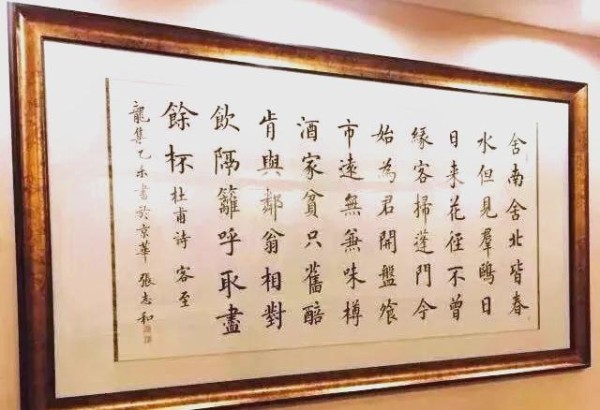 舍南舍北皆春
水但見羣鷗日
日来花徑不曾
緣客掃蓬門今
始為君開盤飧
市遠無兼味樽
酒家貧只舊醅
肯與鄰翁相對
飲隔籬呼取盡
餘杯 杜甫詩 客至
龍集乙未書於京華 張志和